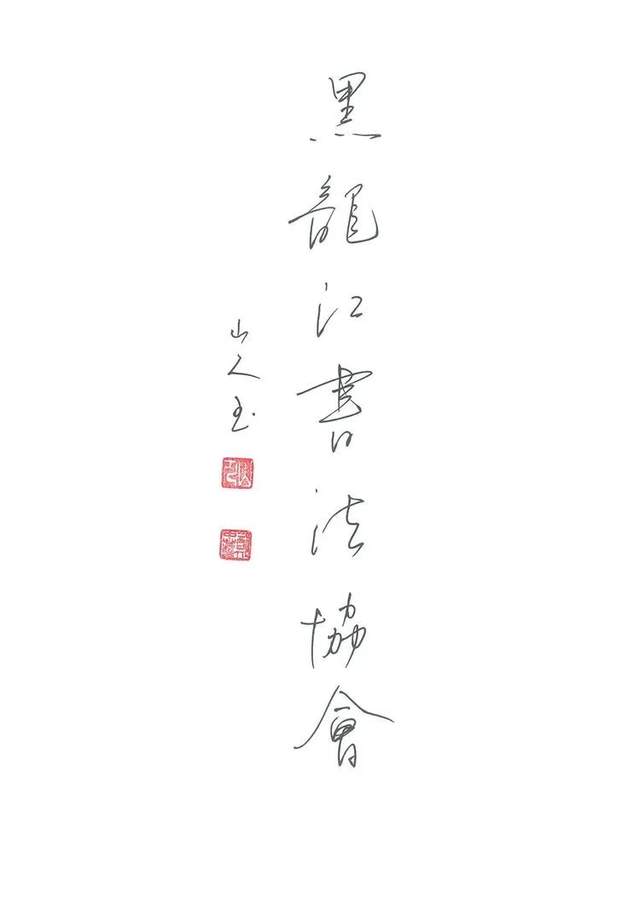 黑龍江書法協會
山人玉